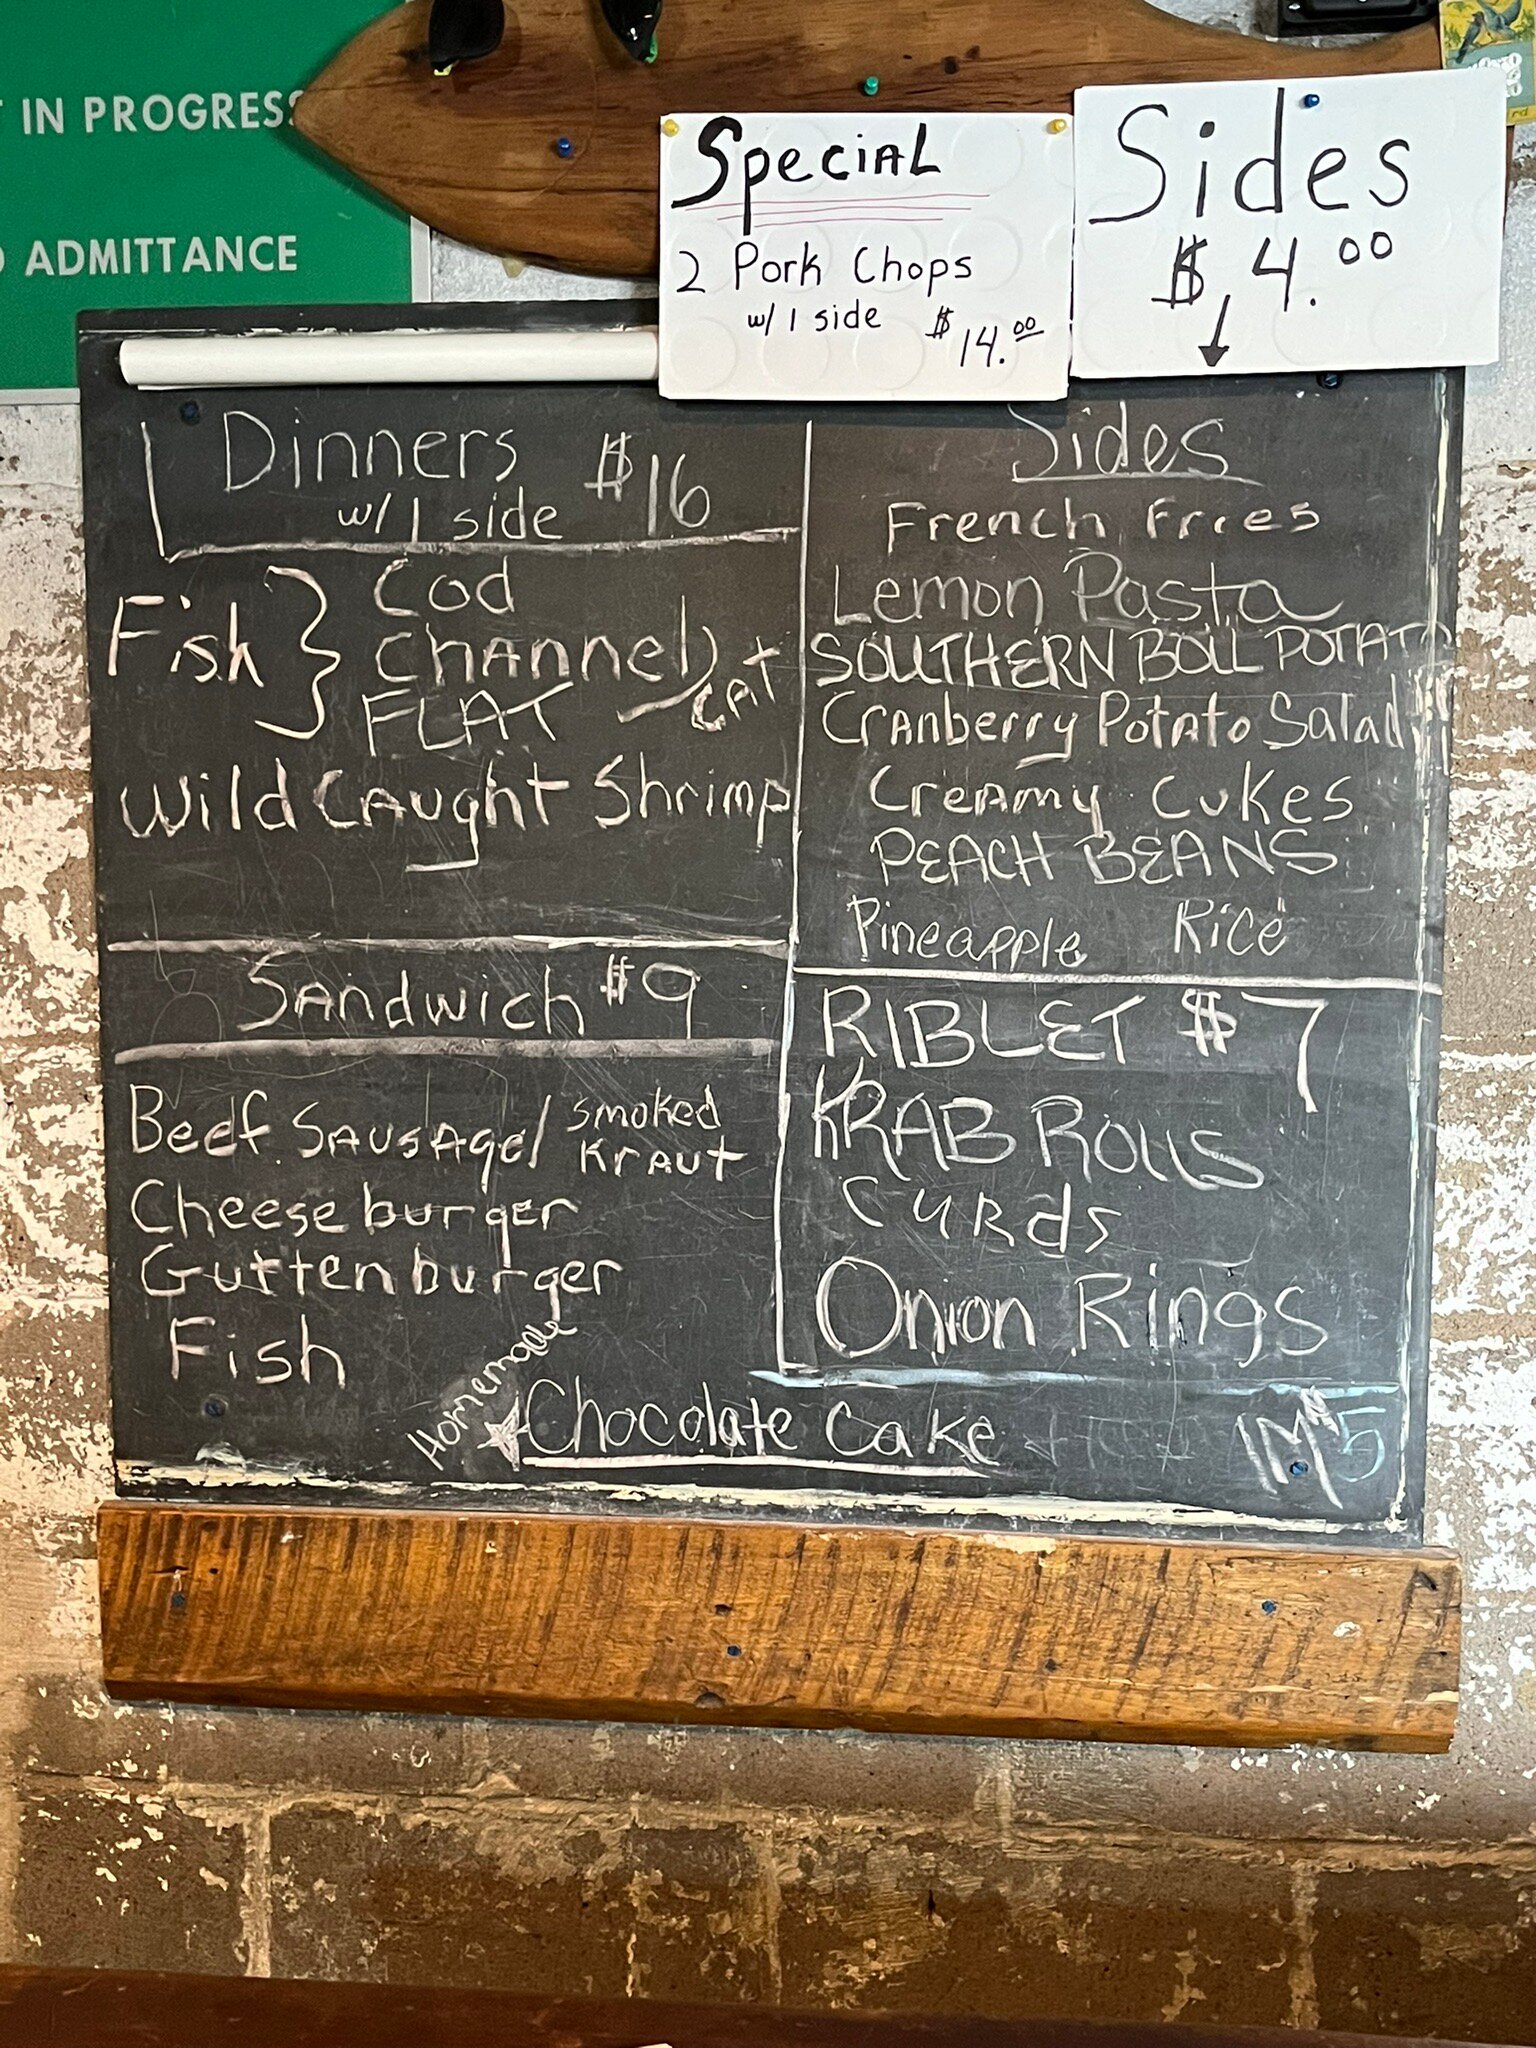 IN PROGRESS
ADMITTANCE
Special
2 Pork Chops
w/ 1 side $14.00
Sides
$4.00
Dinners $16
w/ 1 side
Fish } Cod
Channel
FLAT CAT
Wild Caught Shrimp
Sandwich $9
Beef Sausage/ smoked
Kraut
Cheeseburger
Guttenburger
Fish
Sides
French Fries
Lemon Pasta
SOUTHERN BOIL POTATO
Cranberry Potato Salad
Creamy Cukes
PEACH BEANS
Pineapple Rice
RIBLET $7
KRAB ROLLS
CURds
Onion Rings
Homemade
Chocolate Cake
5